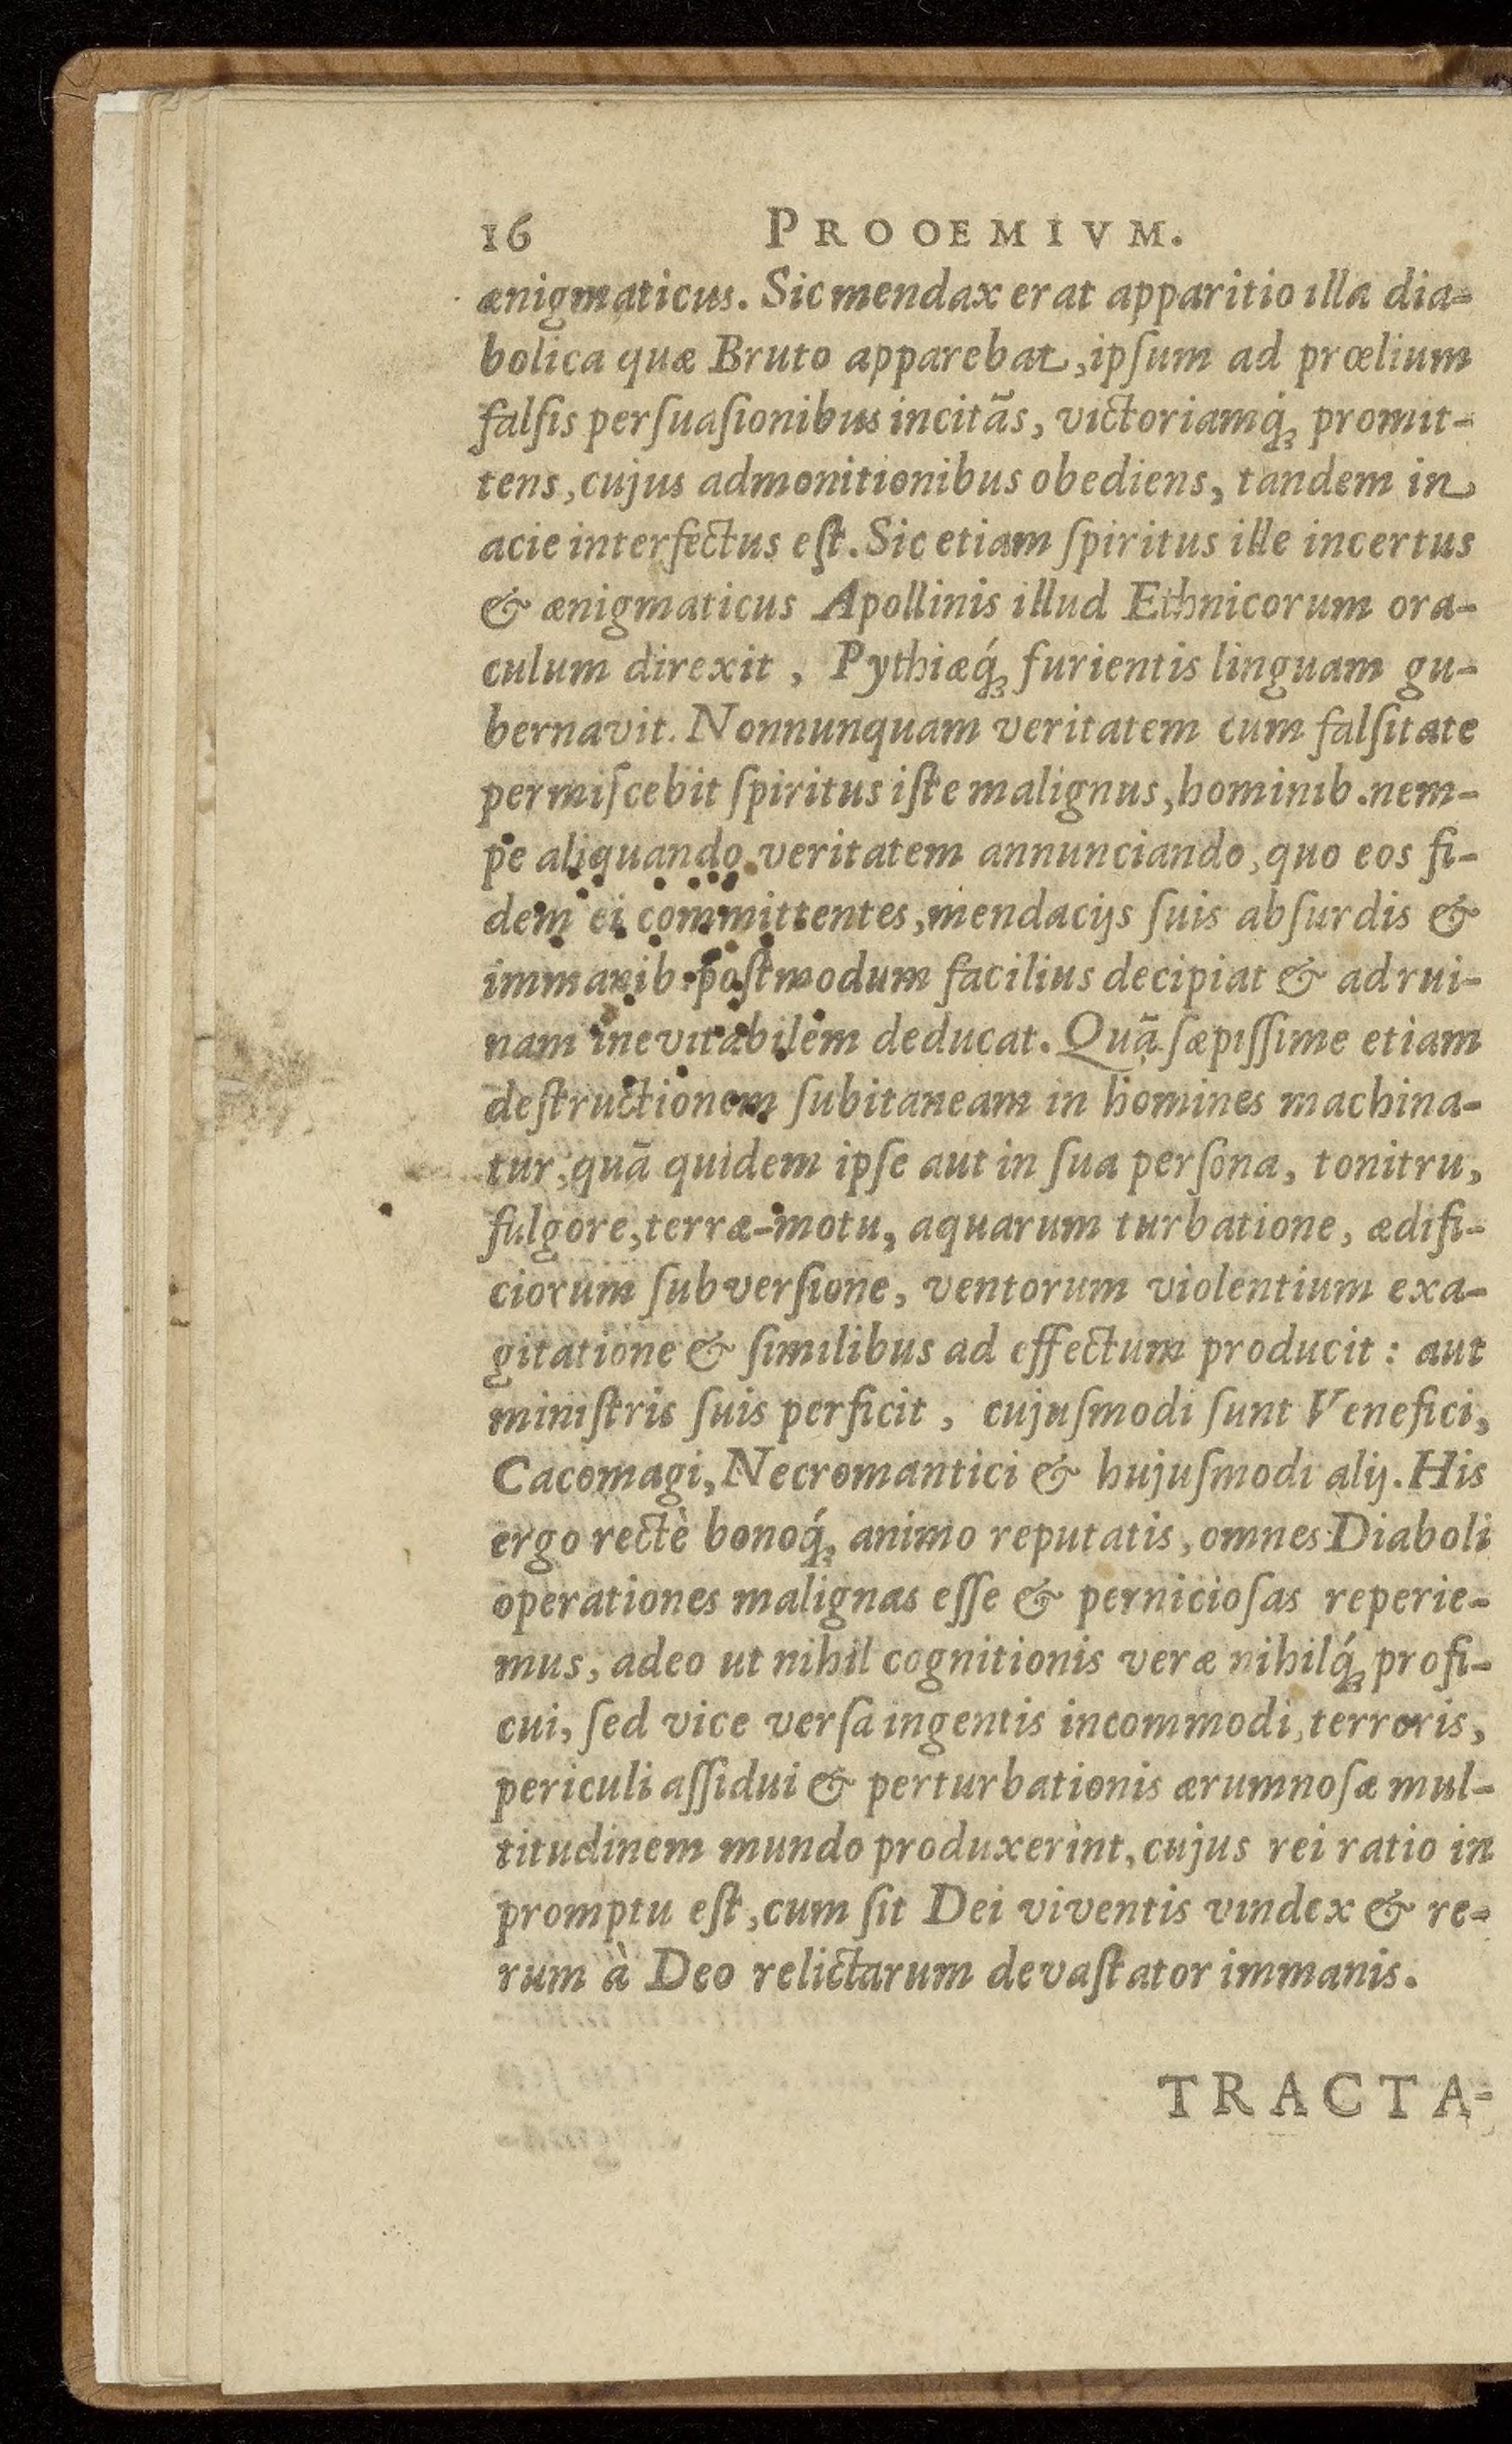 16 PROOEMIVM.
ænigmaticus. Sic mendax erat apparitio illa dia-
bolica quæ Bruto apparebat, ipſum ad prœlium
falſis perſuaſionibus incitãs, victoriamq́; promit-
tens, cujus admonitionibus obediens, tandem in
acie interfectus eſt. Sic etiam ſpiritus ille incertus
& ænigmaticus Apollinis illud Ethnicorum ora-
culum direxit, Pythiæq́; furientis linguam gu-
bernavit. Nonnunquam veritatem cum falſitate
permiſcebit ſpiritus iſte malignus, hominib. nem-
pe aliquando veritatem annunciando, quo eos fi-
dem ei committentes, mendacijs ſuis abſurdis &
immanib. poſtmodum facilius decipiat & ad rui-
nam inevitabilem deducat. Quã ſæpiſſime etiam
deſtructionem ſubitaneam in homines machina-
tur, quã quidem ipſe aut in ſua perſona, tonitru,
fulgore, terræ-motu, aquarum turbatione, ædifi-
ciorum ſubverſione, ventorum violentium exa-
gitatione & ſimilibus ad effectum producit: aut
miniſtris ſuis perficit, cujuſmodi ſunt Venefici,
Cacomagi, Necromantici & hujuſmodi alij. His
ergo rectè bonoq́; animo reputatis, omnes Diaboli
operationes malignas eſſe & pernicioſas reperie-
mus, adeo ut nihil cognitionis veræ nihilq́; profi-
cui, ſed vice verſa ingentis incommodi, terroris,
periculi aſſidui & perturbationis ærumnoſæ mul-
titudinem mundo produxerint, cujus rei ratio in
promptu eſt, cum ſit Dei viventis vindex & re-
rum à Deo relictarum devaſtator immanis.
TRACTA-